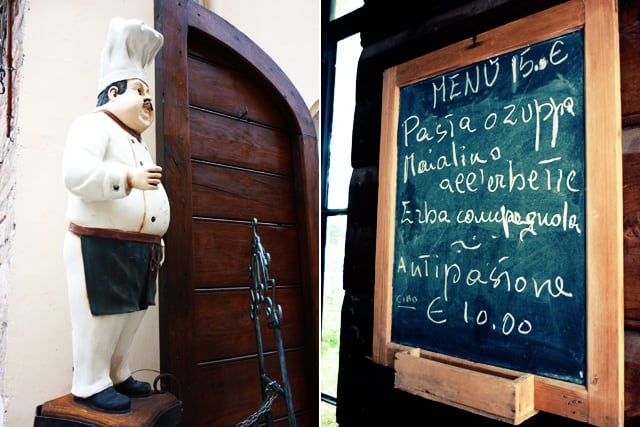 MENÙ 15.00 €
Pasta o zuppa
Maialino
all'erbette
Erba campagnola
Antipastone
€ 10.00